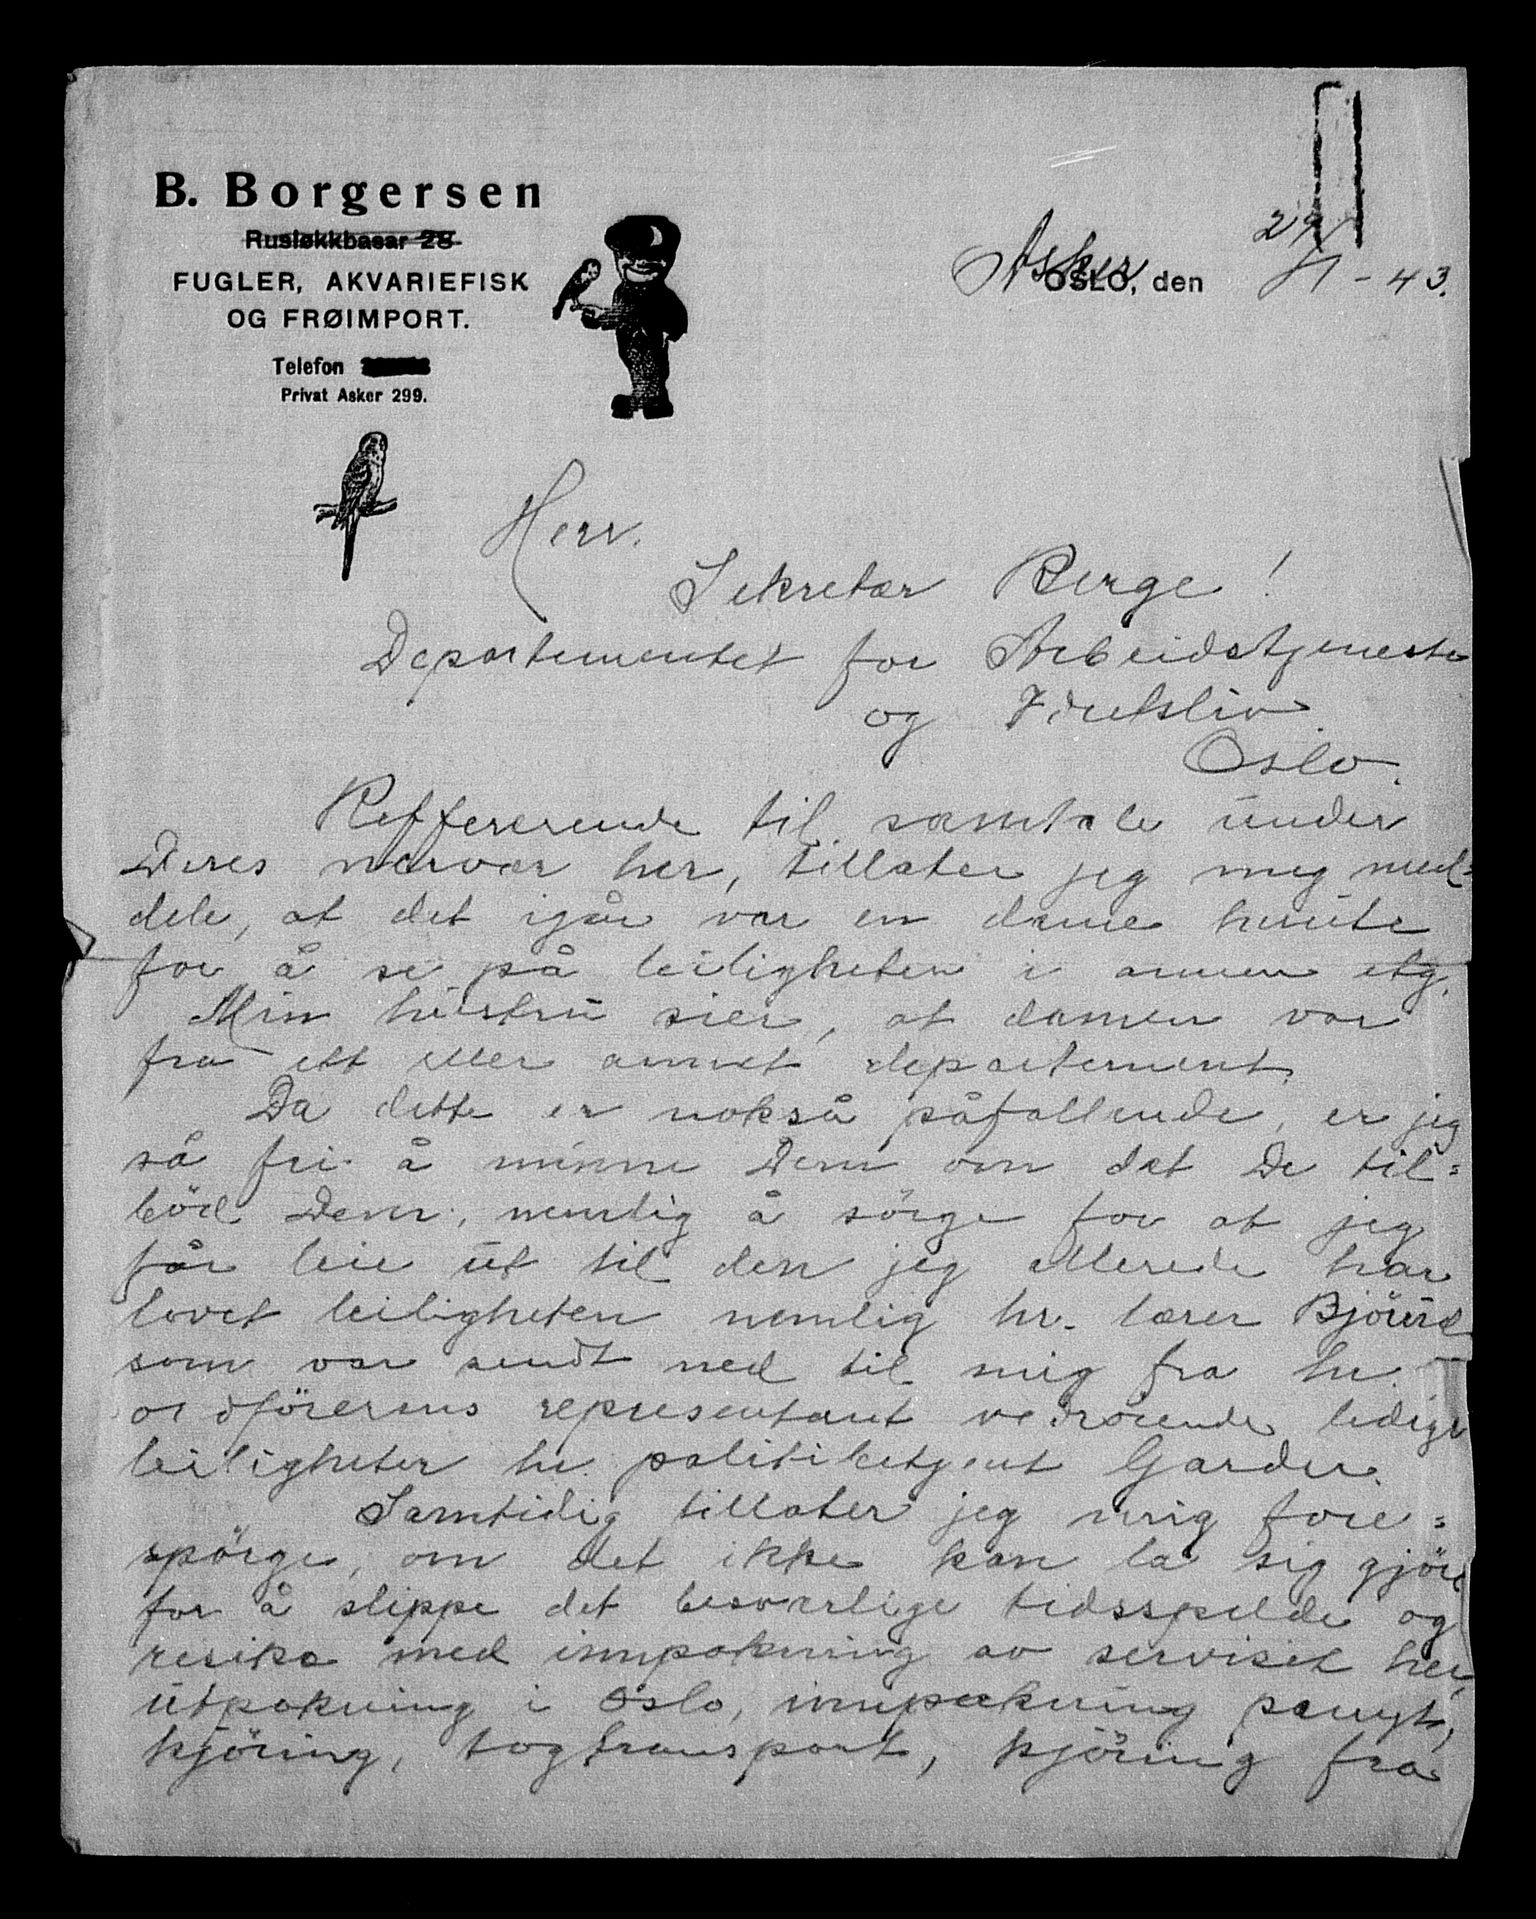 B. Borgersen
Rusløkkbasar 28
FUGLER, AKVARIEFISK
OG FRØIMPORT.
Telefon
Privat Asker 299.
Asker OSLO, den 29/1-43.
Herr.
Sekretær Berge!
Departementet for Arbeidstjeneste
og Idretsliv.
Oslo.
Reffererende til samtale under
Deres nærvær her, tillater jeg mig med=
dele, at det igår var en dame herute
for å se på leiligheten i annen etg.
Min hustru sier, at damen var
fra ett eller annet departement.
Da dette er nokså påfallende, er jeg
så fri å minne Dem om det De til=
böd Dem, nemlig å sörge for at jeg
får leie ut til den jeg allerede har
lovet leiligheten nemlig hr. lærer
som var sendt ned til mig fra hr.
ordförerens representant vedrörende ledige
leiligheter hr. politibetjent Garder.
Samtidig tillater jeg mig fore=
spörge, om det ikke kan la sig gjöre
for å slippe det besværlige tidsspilde og
resiko med innpakning av serviset her,
utpakning i Oslo, innpakning panyt,
kjöring, togtransport, kjöring fra